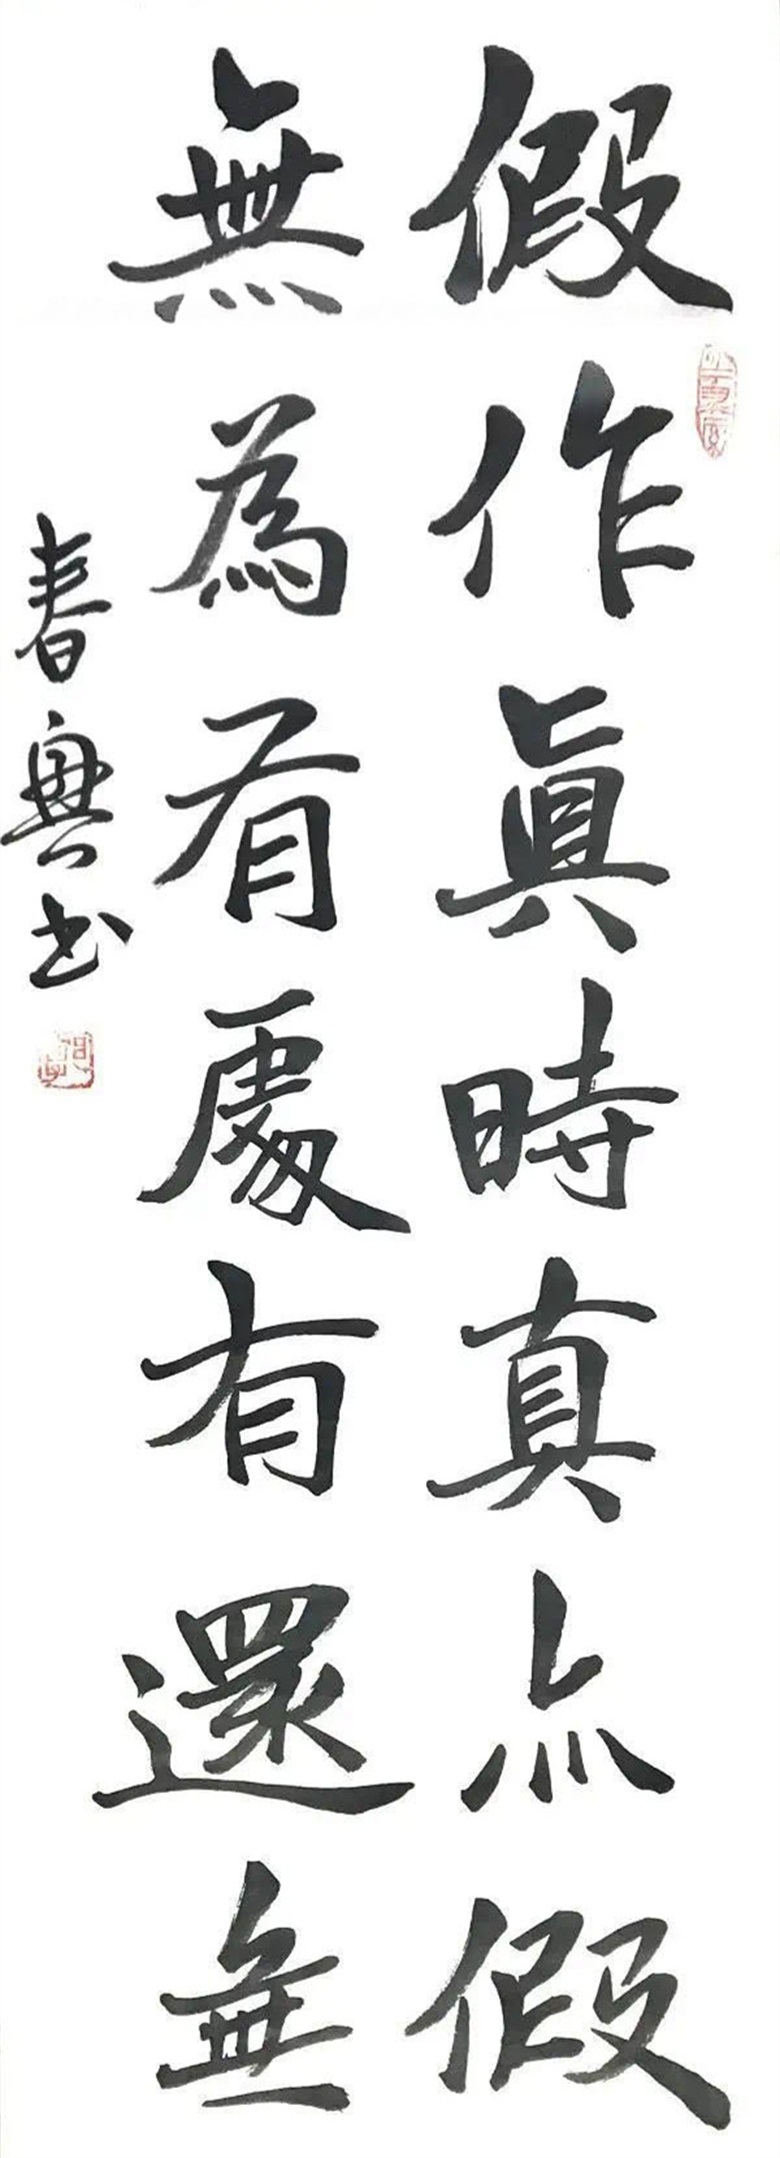 假作眞時真亦假
無為有處有還無
春興书